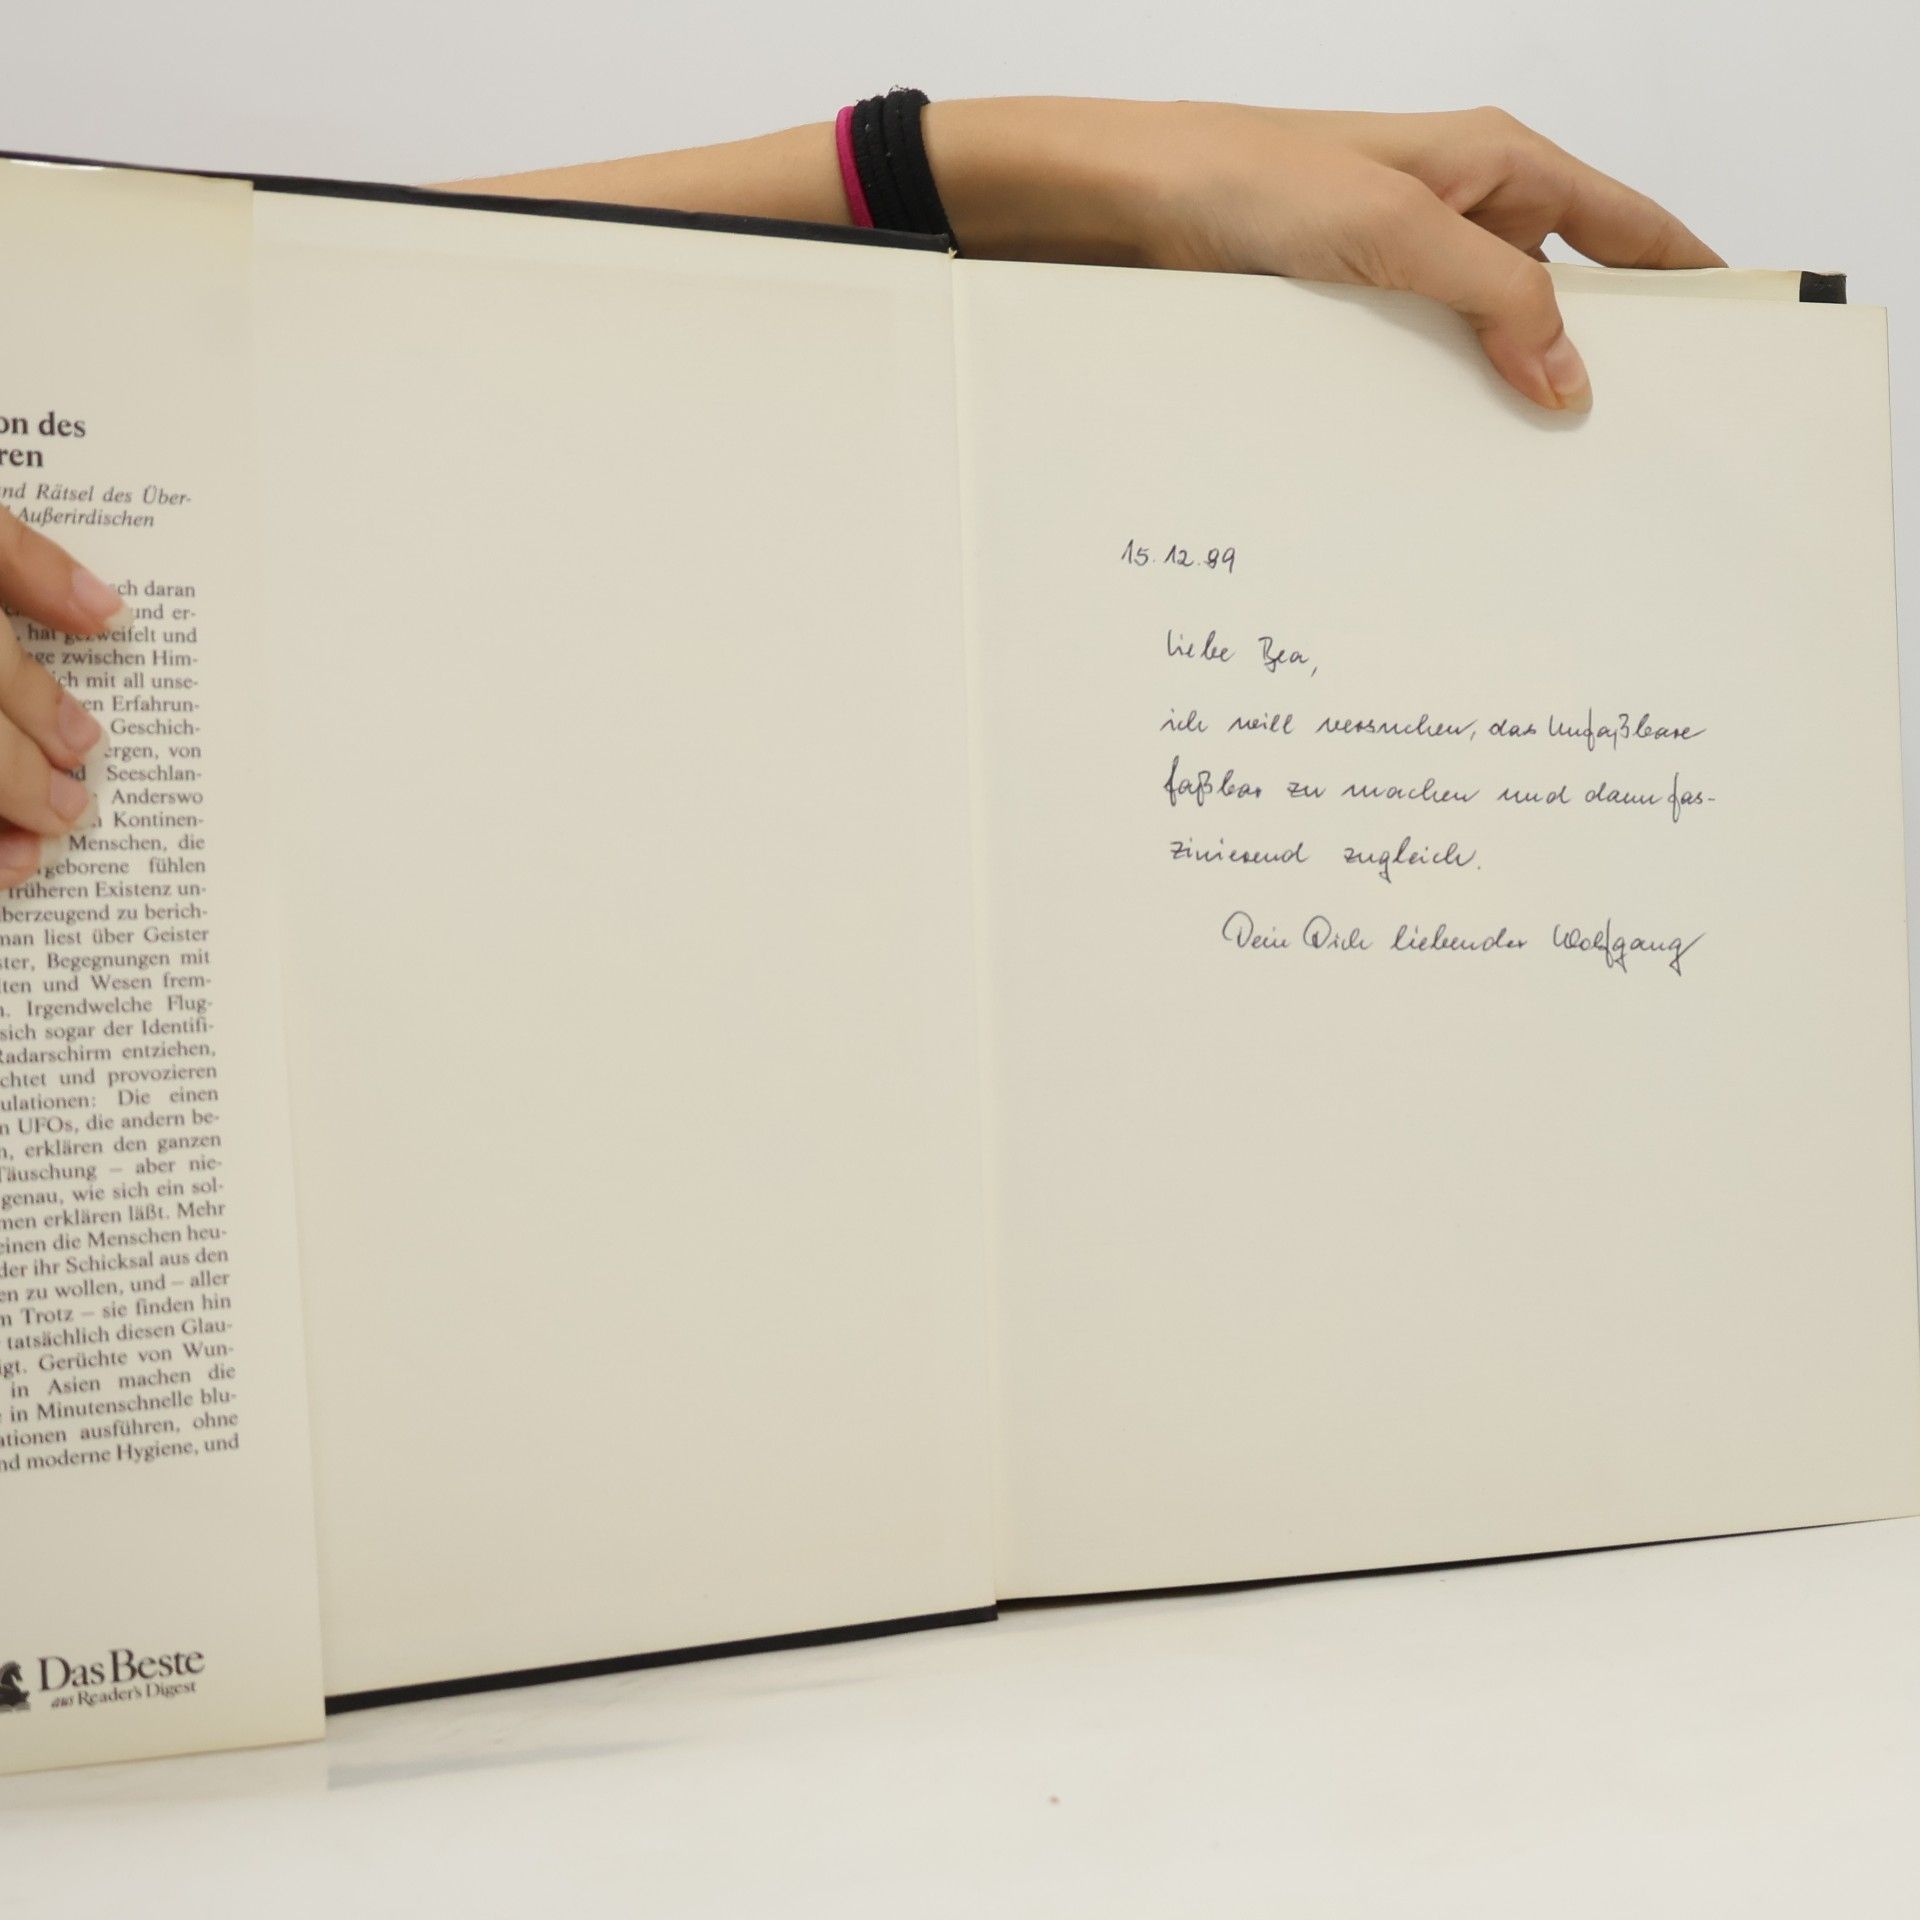 on des
ren
nd Rätsel des Über-
Außerirdischen
ch daran
und er-
hat gezweifelt und
ge zwischen Him-
ich mit all unse-
en Erfahrun-
Geschich-
ergen, von
d Seeschlan-
Anderswo
n Kontinen-
Menschen, die
geborene fühlen
früheren Existenz un-
berzeugend zu berich-
man liest über Geister
ster, Begegnungen mit
lten und Wesen frem-
n. Irgendwelche Flug-
sich sogar der Identifi-
Radarschirm entziehen,
chtet und provozieren
ulationen: Die einen
n UFOs, die andern be-
n, erklären den ganzen
Täuschung – aber nie-
genau, wie sich ein sol-
men erklären läßt. Mehr
einen die Menschen heu-
der ihr Schicksal aus den
en zu wollen, und – aller
m Trotz – sie finden hin
tatsächlich diesen Glau-
igt. Gerüchte von Wun-
in Asien machen die
in Minutenschnelle blu-
ationen ausführen, ohne
nd moderne Hygiene, und
Das Beste
aus Reader's Digest
15.12.99
Liebe Bea,
ich will versuchen, das Unfaßbare
faßbar zu machen und dann fas-
zinierend zugleich.
Dein Dich liebender Wolfgang